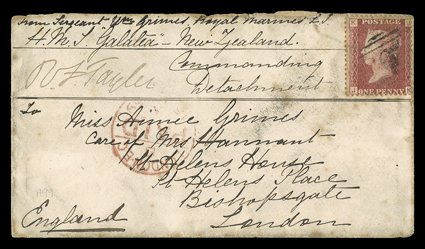 From Sergeant Wm Grimes, Royal Marines L.I.
H.M.S. Galatea - New Zealand.
R J Tayler Commanding
Detachment
POSTAGE
ONE PENNY
To
Miss Annee Grimes
Care of Mrs Hannant
St Helens House
St Helens Place
Bishopsgate
London
England